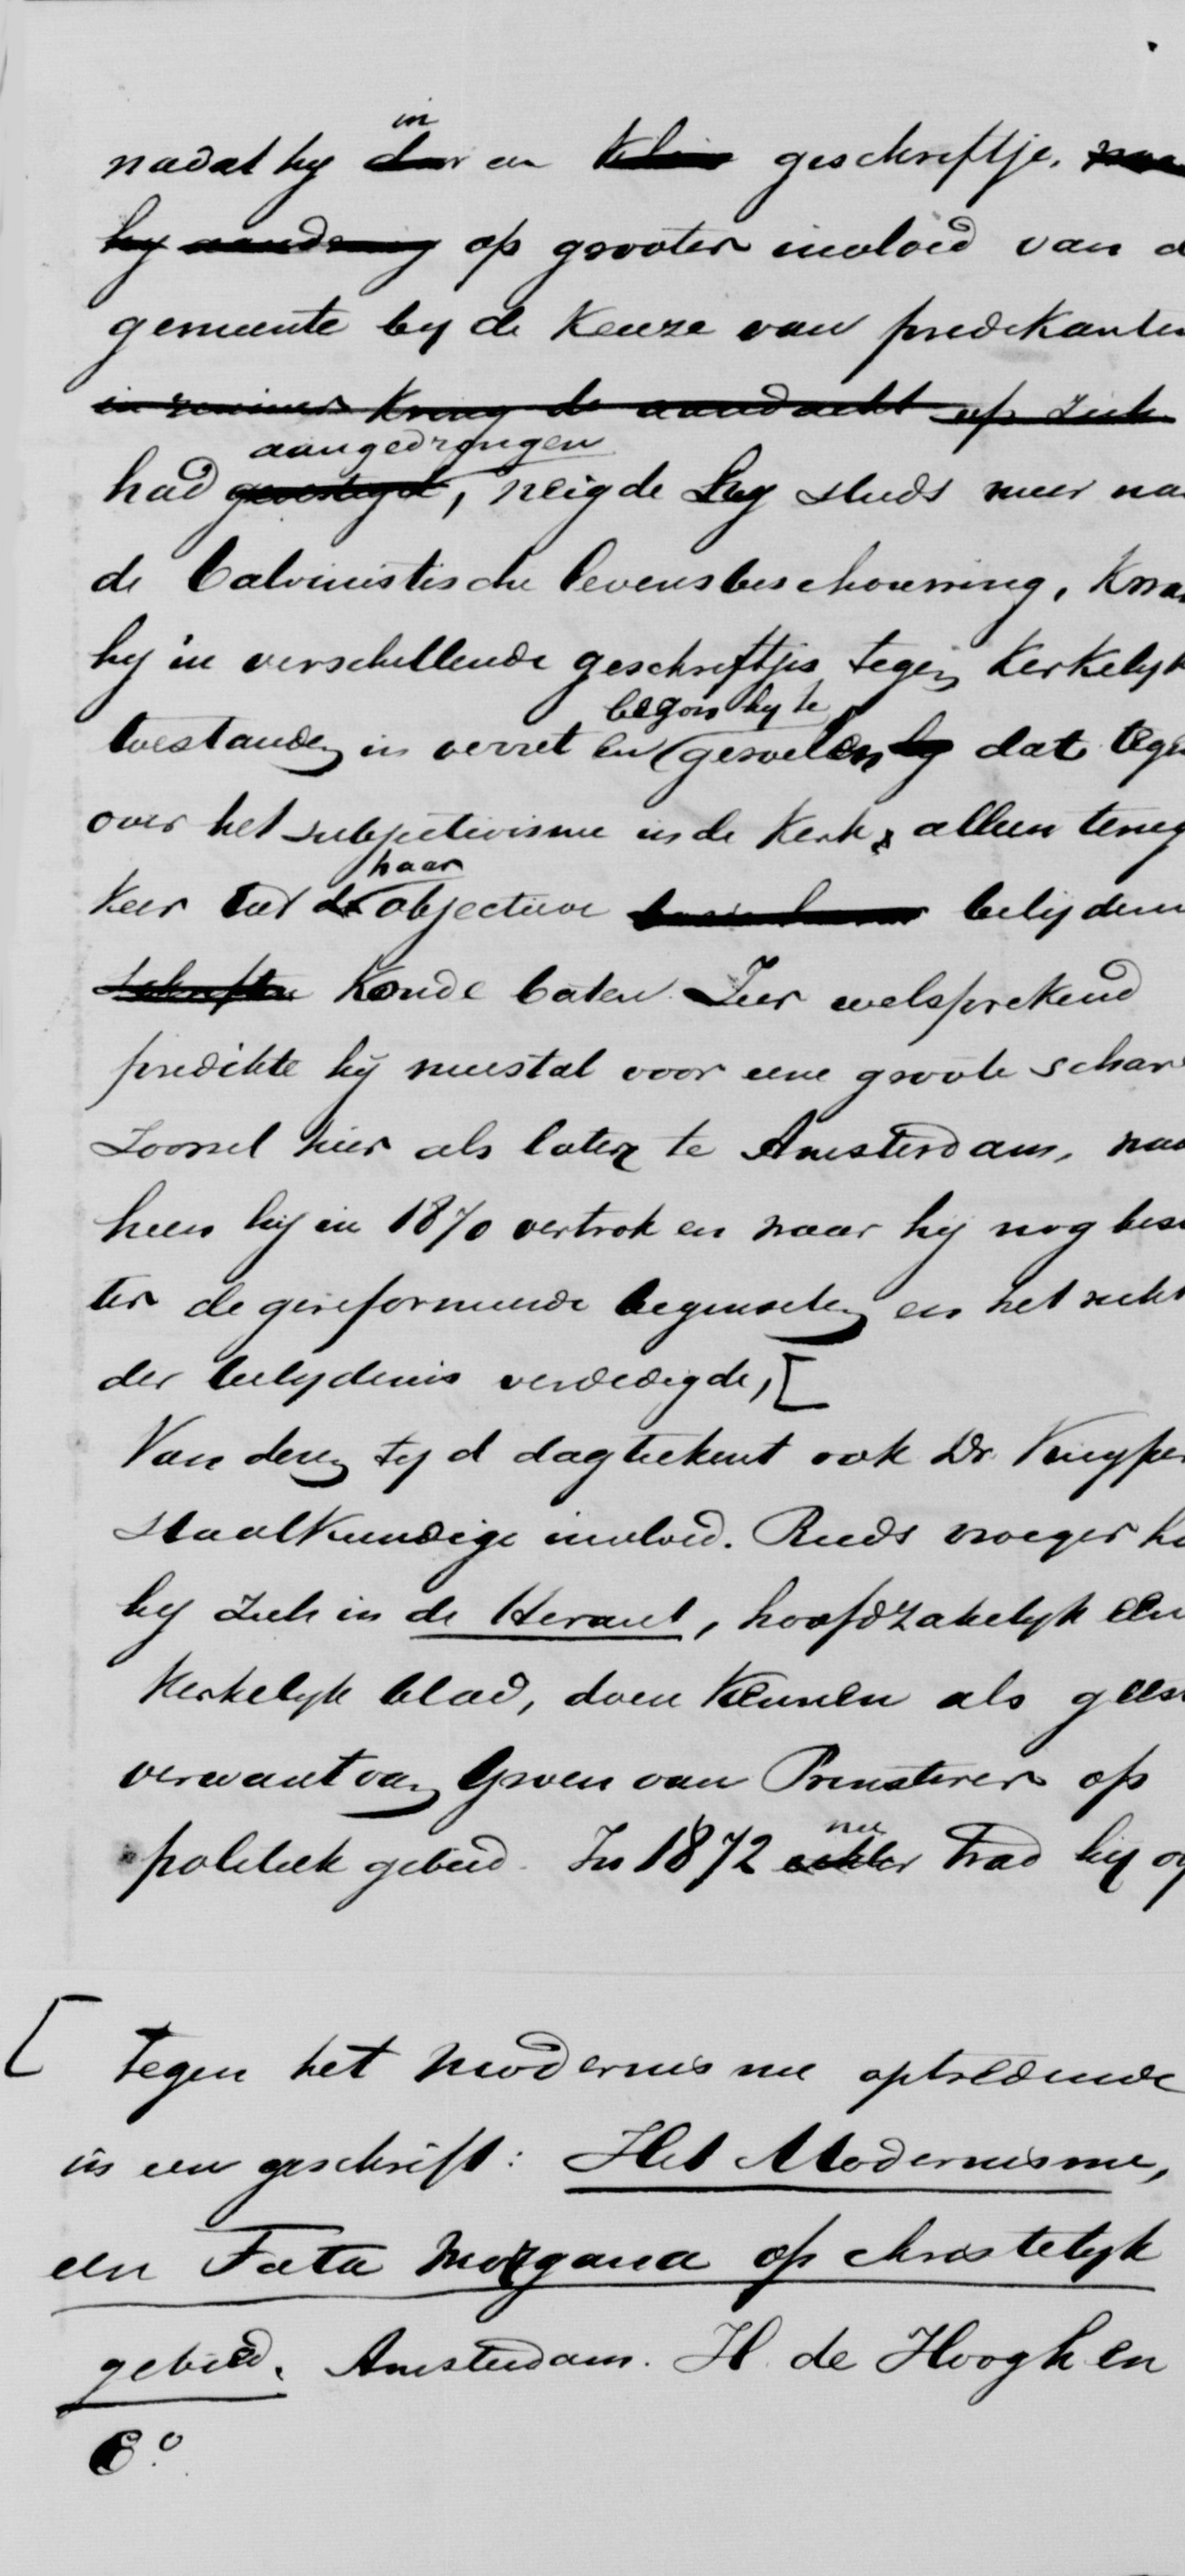 in
nadat hy een geschriftje,
op grooter invloed van d
gemeente by de keuze van predikanten
in ruimer kring de aandacht op zich
aangedrongen
had gevestigd, neigde hy steeds meer naa
de Calvinistische levensbeschouwing, kwam
hy in verschillende geschriftjes tegen kerkelyk
begon hy te
toestanden in verzet en gevoelen hy dat tegen
over het subjectivisme in de kerk, alleen terug
haar
keer tot de objectieve belijdenis
schriften konde baten. Zeer welsprekend
predikte hij meestal voor eene groote schar
Zoowel hier als later te Amsterdam, waar
heen hij in 1870 vertrok en waar hij nog bes
ter de gereformeerde beginselen en het recht
der belydenis verdedigde, [
Van dezen tyd dagteekent ook Dr. Kuyper
staatkundige invloed. Reeds vroeger ha
hy zich in de Heraut, hoofdzakelyk een
kerkelyk blad, doen kennen als geest
verwant van Groen van Prinsterer op
nu
politiek gebied. In 1872 echter trad hij op
[ tegen het modernisme optredende
in een geschrift: Het Modernisme,
een Fata Morgana op christelyk
gebied. Amsterdam. H. de Hoogh en
Co.